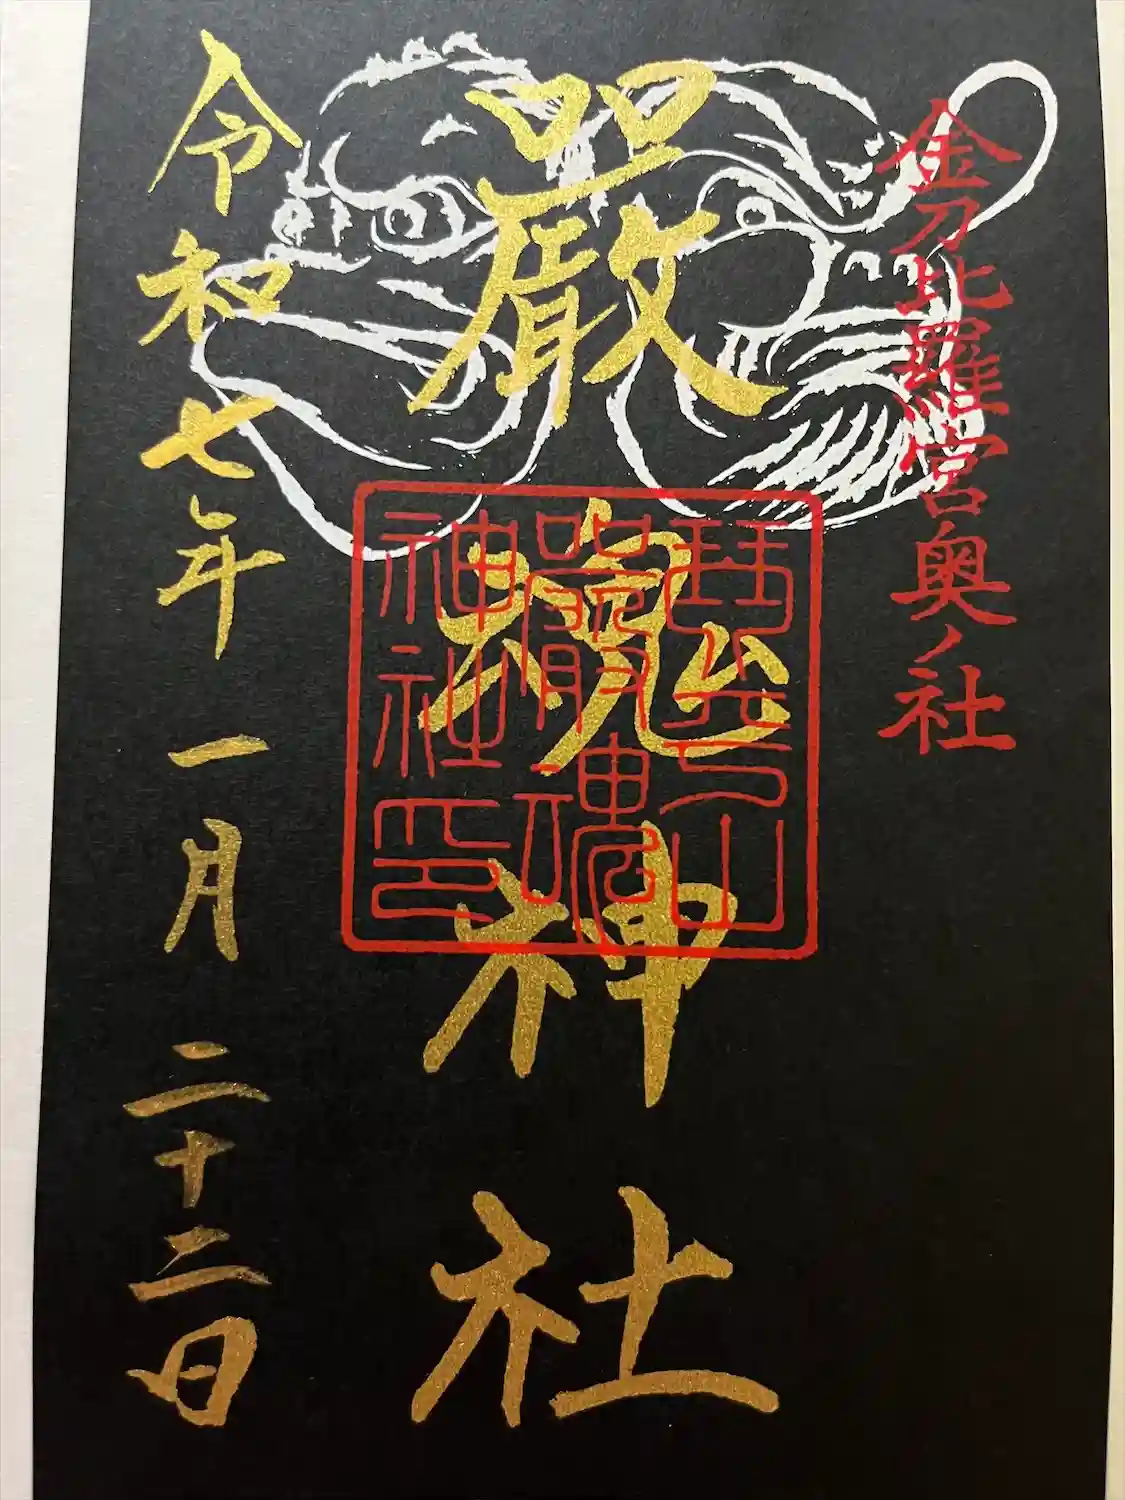 金刀比羅宮奥ノ社
嚴魂神社
琴平山
嚴魂
神社印
令和七年一月二十二日